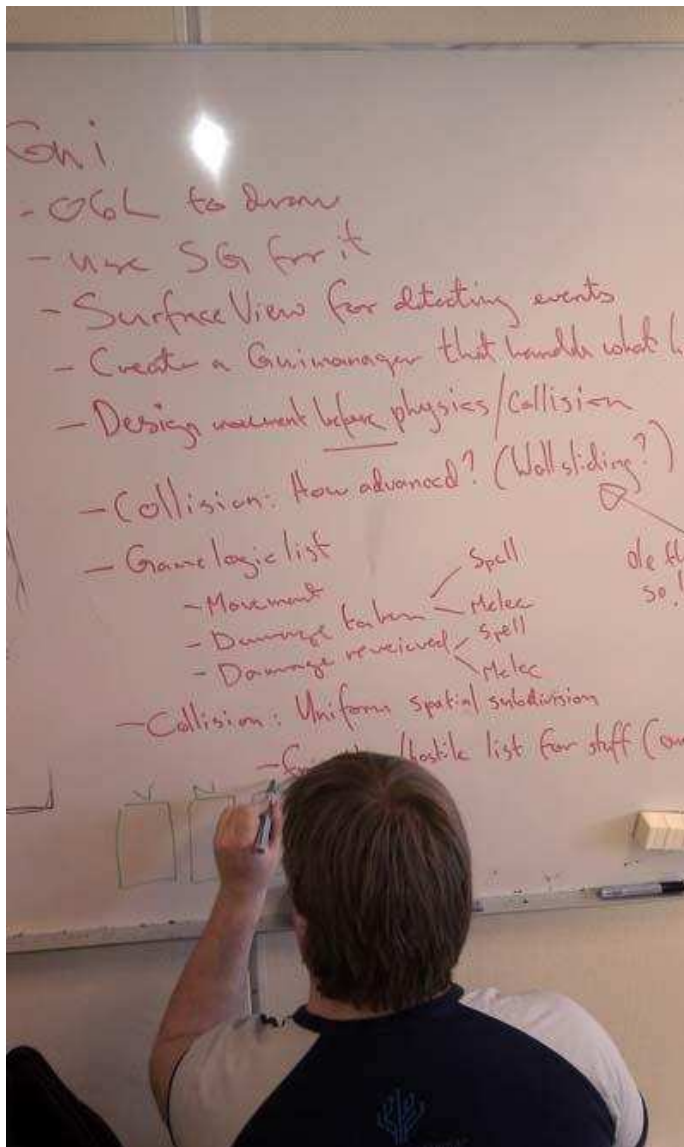 Gui
- OGL to draw
- use SG for it
- SurfaceView for detecting events
- Create a Guimanager that handls what
- Design movement before physics/Collision
- Collision: How advanced? (Wallsliding?)
- Gamelogic list
- Movement
Spell
- Damage taken
Melee
- Damage reveieved
Spell
Melee
- Collision: Uniform spatial subdivision
/hostile list for stuff
so!
Y N